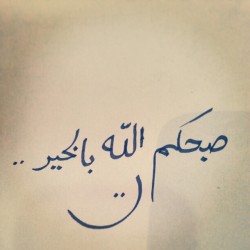 صبحكم الله بالخير ..